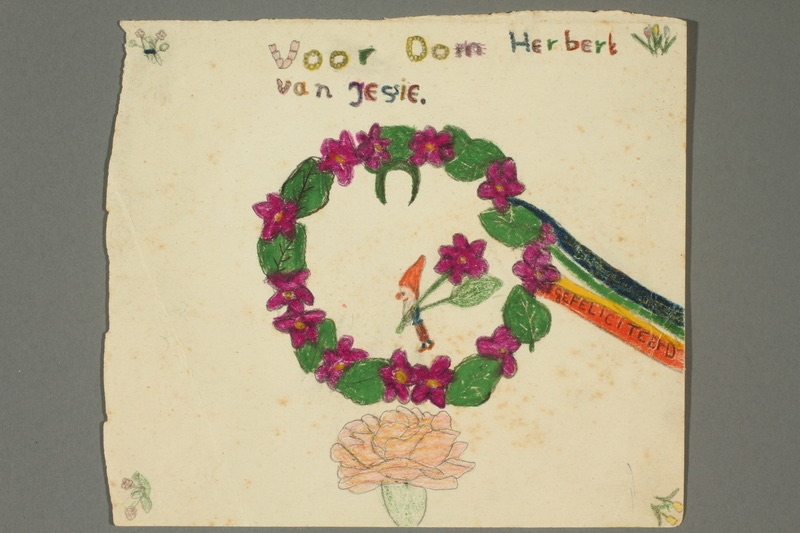 Voor Oom Herbert
van Jessie.
GEFELICITEERD